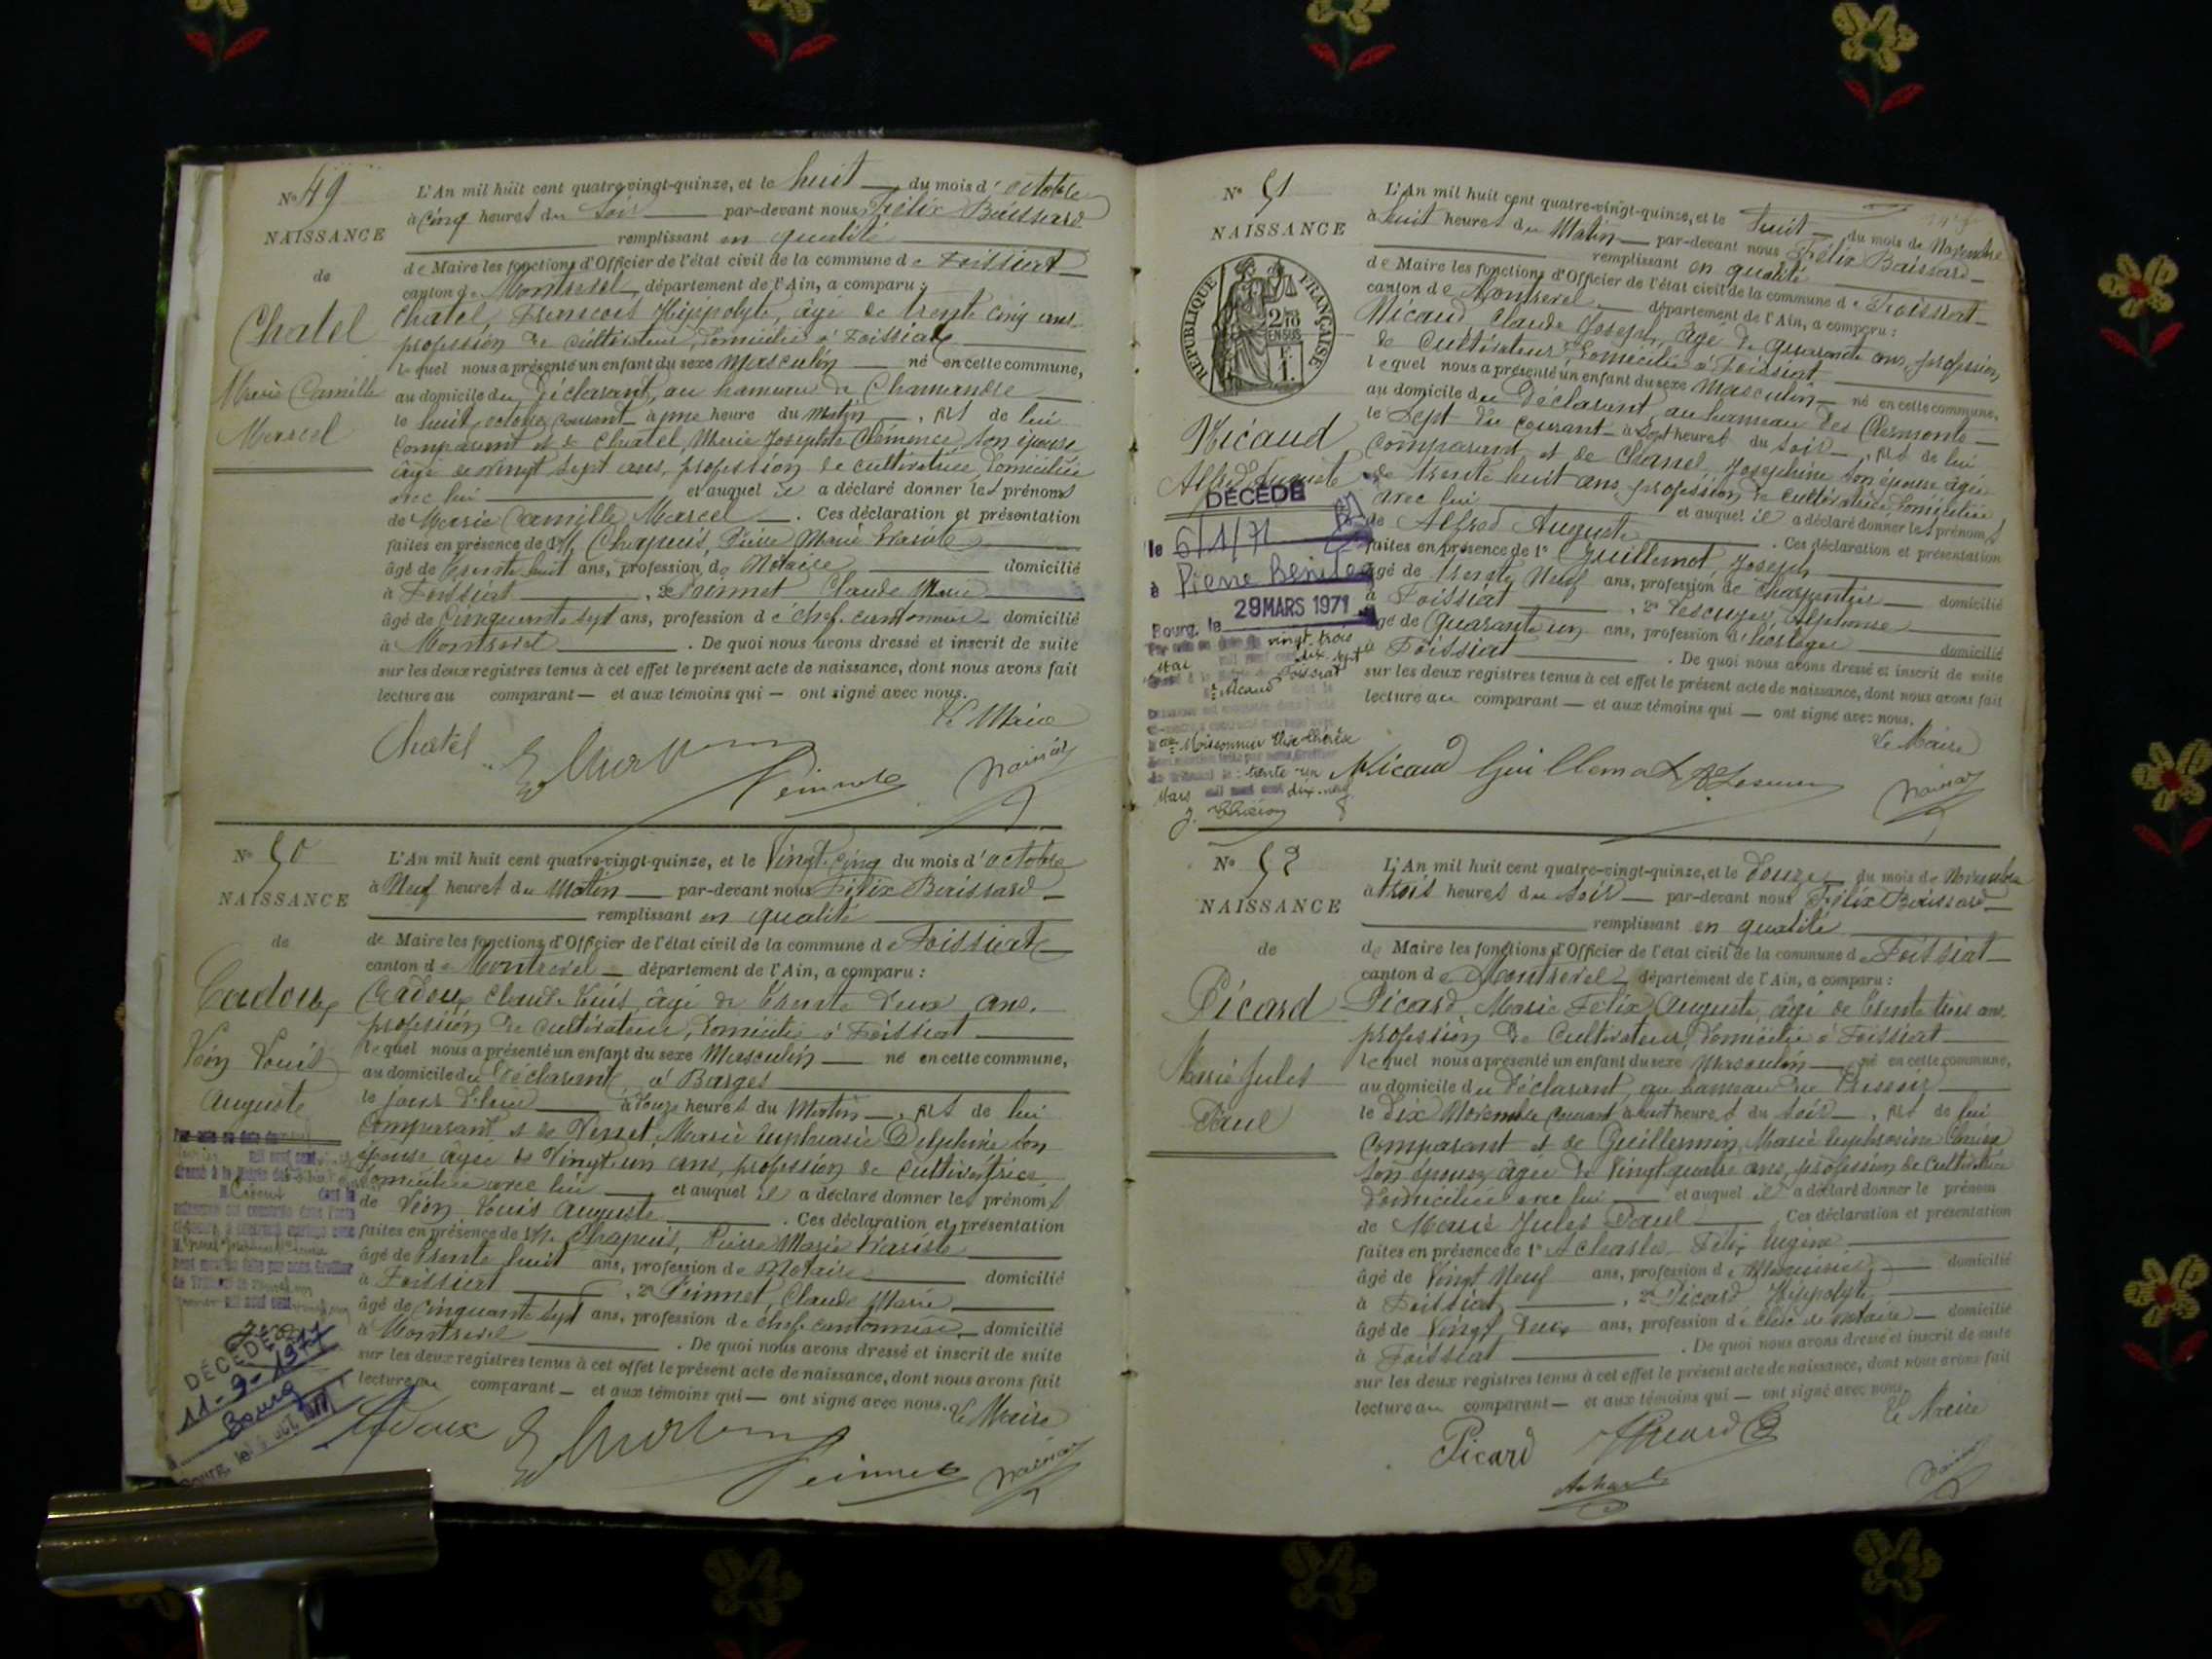 No 49
NAISSANCE
de
Chatel
Marie Camille
Marcel
L'An mil huit cent quatre-vingt-quinze, et le huit du mois d'octobre
à cinq heures du soir par-devant nous Félix Baissard
remplissant en qualité
de Maire les fonctions d'Officier de l'état civil de la commune de Foissiat
canton de Montrevel département de l'Ain, a comparu :
Chatel, François Hippolyte, âgé de trente cinq ans
profession de cultivateur, domicilié à Foissiat
lequel nous a présenté un enfant du sexe Masculin né en cette commune,
au domicile du Déclarant, au hameau de Chamandre
le huit octobre courant à une heure du Matin, fils de lui
Comparant et de Chatel, Marie Josephte Clémence, son épouse
âgée de vingt sept ans, profession de cultivatrice, domiciliée
avec lui et auquel il a déclaré donner les prénoms
de Marie Camille Marcel. Ces déclaration et présentation
faites en présence de Chapuis, Pierre Marie
âgé de trente huit ans, profession de Notaire domicilié
à Foissiat, 2e Prinnet Claude Marie
âgé de Cinquante sept ans, profession de chef cantonnier domicilié
à Montrevel. De quoi nous avons dressé et inscrit de suite
sur les deux registres tenus à cet effet le présent acte de naissance, dont nous avons fait
lecture au comparant et aux témoins qui ont signé avec nous.
Le Maire
Chatel
No 50
NAISSANCE
de
Cadoux
Léon Louis
Auguste
L'An mil huit cent quatre-vingt-quinze, et le Vingt cinq du mois d'octobre
à Neuf heures du Matin par-devant nous Félix Baissard
remplissant en qualité
de Maire les fonctions d'Officier de l'état civil de la commune de Foissiat
canton de Montrevel département de l'Ain, a comparu :
Cadoux Claude Louis, âgé de trente deux ans,
profession de cultivateur, domicilié à Foissiat
lequel nous a présenté un enfant du sexe Masculin né en cette commune,
au domicile du Déclarant, à Barges
le jour d'hier à douze heures du Matin, fils de lui
Comparant et de Perret, Marie Euphrasie Delphine son
épouse âgée de Vingt un ans, profession de cultivatrice
domiciliée avec lui et auquel il a déclaré donner les prénoms
de Léon Louis Auguste. Ces déclaration et présentation
faites en présence de Chapuis, Pierre Marie
âgé de trente huit ans, profession de Notaire domicilié
à Foissiat, 2e Prinnet, Claude Marie
âgé de cinquante sept ans, profession de chef cantonnier domicilié
à Montrevel. De quoi nous avons dressé et inscrit de suite
sur les deux registres tenus à cet effet le présent acte de naissance, dont nous avons fait
lecture au comparant et aux témoins qui ont signé avec nous.
Le Maire
DÉCÉDÉ
11-9-1977
à Bourg
Cadoux
No 51
NAISSANCE
RÉPUBLIQUE FRANÇAISE
2/10 EN SUS
Micaud
Alfred Auguste
DÉCÉDÉ
le 6/1/71
à Pierre Bénite
Bourg, le 29 MARS 1971
vingt trois
Mai
Foissiat
Micaud
L'An mil huit cent quatre-vingt-quinze, et le huit du mois de Novembre
à huit heures du Matin par-devant nous Félix Baissard
remplissant en qualité
de Maire les fonctions d'Officier de l'état civil de la commune de Foissiat
canton de Montrevel département de l'Ain, a comparu :
Micaud Claude Joseph, âgé de quarante ans, profession
de Cultivateur, domicilié à Foissiat
lequel nous a présenté un enfant du sexe Masculin né en cette commune,
au domicile du Déclarant, au hameau des
le Sept du courant à Sept heures du soir, fils de lui
Comparant et de Chanel, Josephine son épouse âgée
de trente huit ans, profession de cultivatrice, domiciliée
avec lui et auquel il a déclaré donner les prénoms
de Alfred Auguste. Ces déclaration et présentation
faites en présence de 1° Guillemot, Joseph
âgé de trente Neuf ans, profession de Charpentier domicilié
à Foissiat, 2° Lescuyer, Alphonse
âgé de Quarante un ans, profession d'horloger domicilié
à Foissiat. De quoi nous avons dressé et inscrit de suite
sur les deux registres tenus à cet effet le présent acte de naissance, dont nous avons fait
lecture au comparant et aux témoins qui ont signé avec nous.
Le Maire
Micaud Guillemot
No 52
NAISSANCE
de
Picard
Marie Jules
Paul
L'An mil huit cent quatre-vingt-quinze, et le douze du mois de Novembre
à trois heures du soir par-devant nous Félix Baissard
remplissant en qualité
de Maire les fonctions d'Officier de l'état civil de la commune de Foissiat
canton de Montrevel département de l'Ain, a comparu :
Picard, Marie Félix Auguste, âgé de trente trois ans,
profession de Cultivateur, domicilié à Foissiat
lequel nous a présenté un enfant du sexe Masculin né en cette commune,
au domicile du Déclarant, au hameau du
le Dix Novembre courant à huit heures du soir, fils de lui
Comparant et de Guillermin, Marie Euphrosine
son épouse, âgée de Vingt quatre ans, profession de cultivatrice
domiciliée avec lui et auquel il a déclaré donner le prénom
de Marie Jules Paul Ces déclaration et présentation
faites en présence de 1° Acharles Félix Eugène
âgé de Vingt Neuf ans, profession de Menuisier domicilié
à Foissiat, 2° Picard Hippolyte
âgé de Vingt Deux ans, profession de Clerc de notaire domicilié
à Foissiat. De quoi nous avons dressé et inscrit de suite
sur les deux registres tenus à cet effet le présent acte de naissance, dont nous avons fait
lecture au comparant et aux témoins qui ont signé avec nous.
Le Maire
Picard